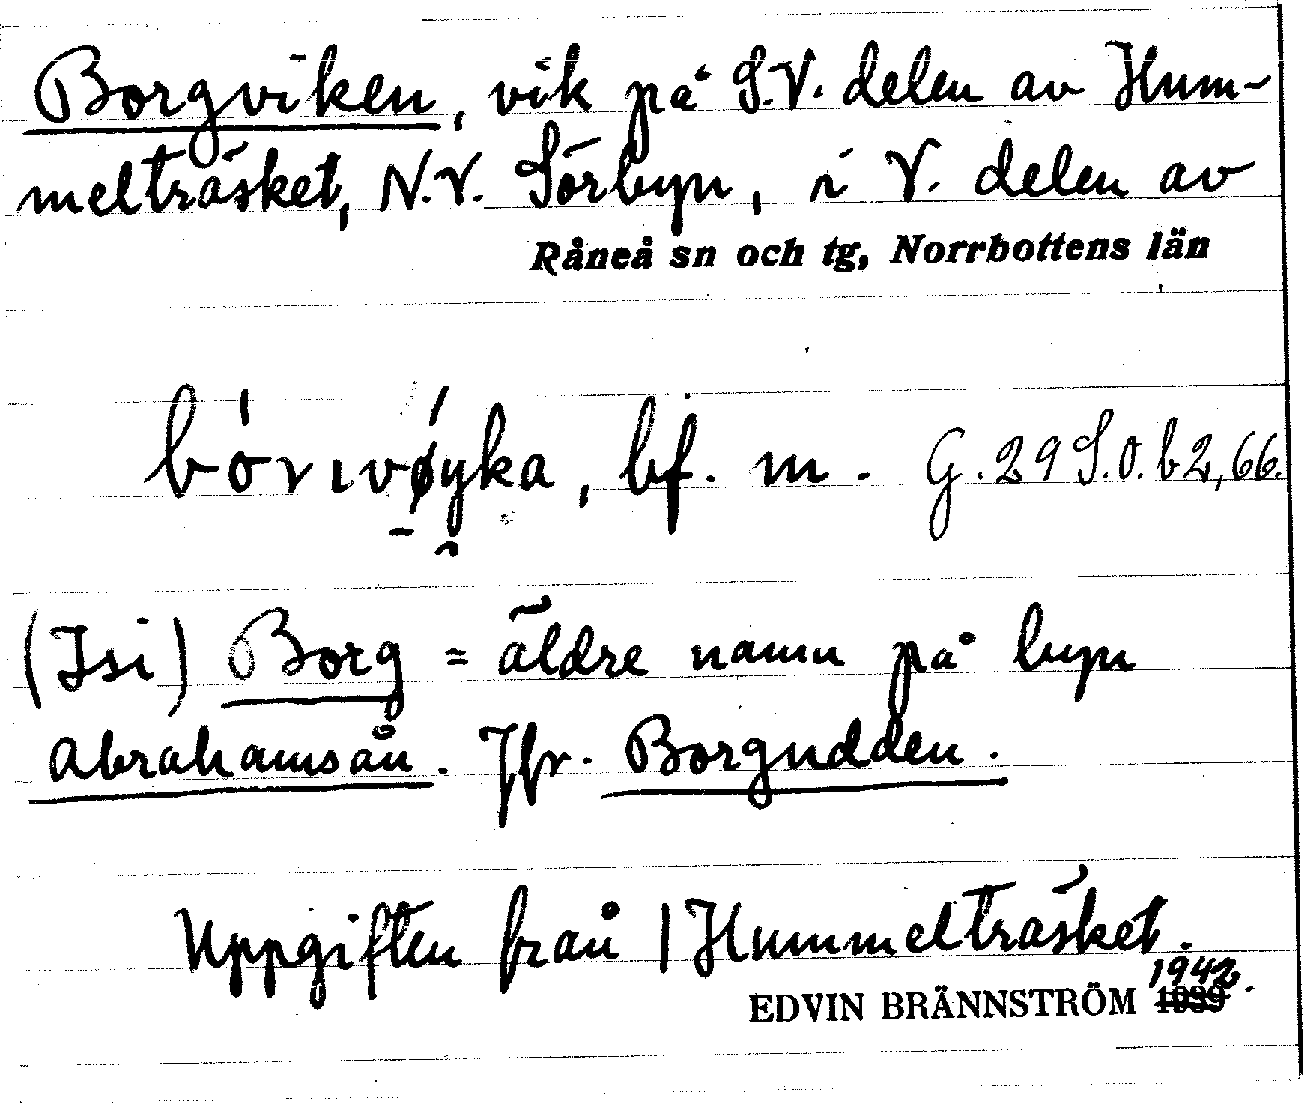 Borgviken, vik på S.V. delen av Hum-
melträsket, N.V. Sörbyn, i V. delen av
Råneå sn och tg, Norrbottens län
bórıvǿyka, bf. m. G. 29 S.O. b2,66.
(Isi) Borg = äldre namn på byn
Abrahamsån. Jfr. Borgudden.
Uppgiften från 1 Hummelträsket.
1942.
EDVIN BRÄNNSTRÖM 1939